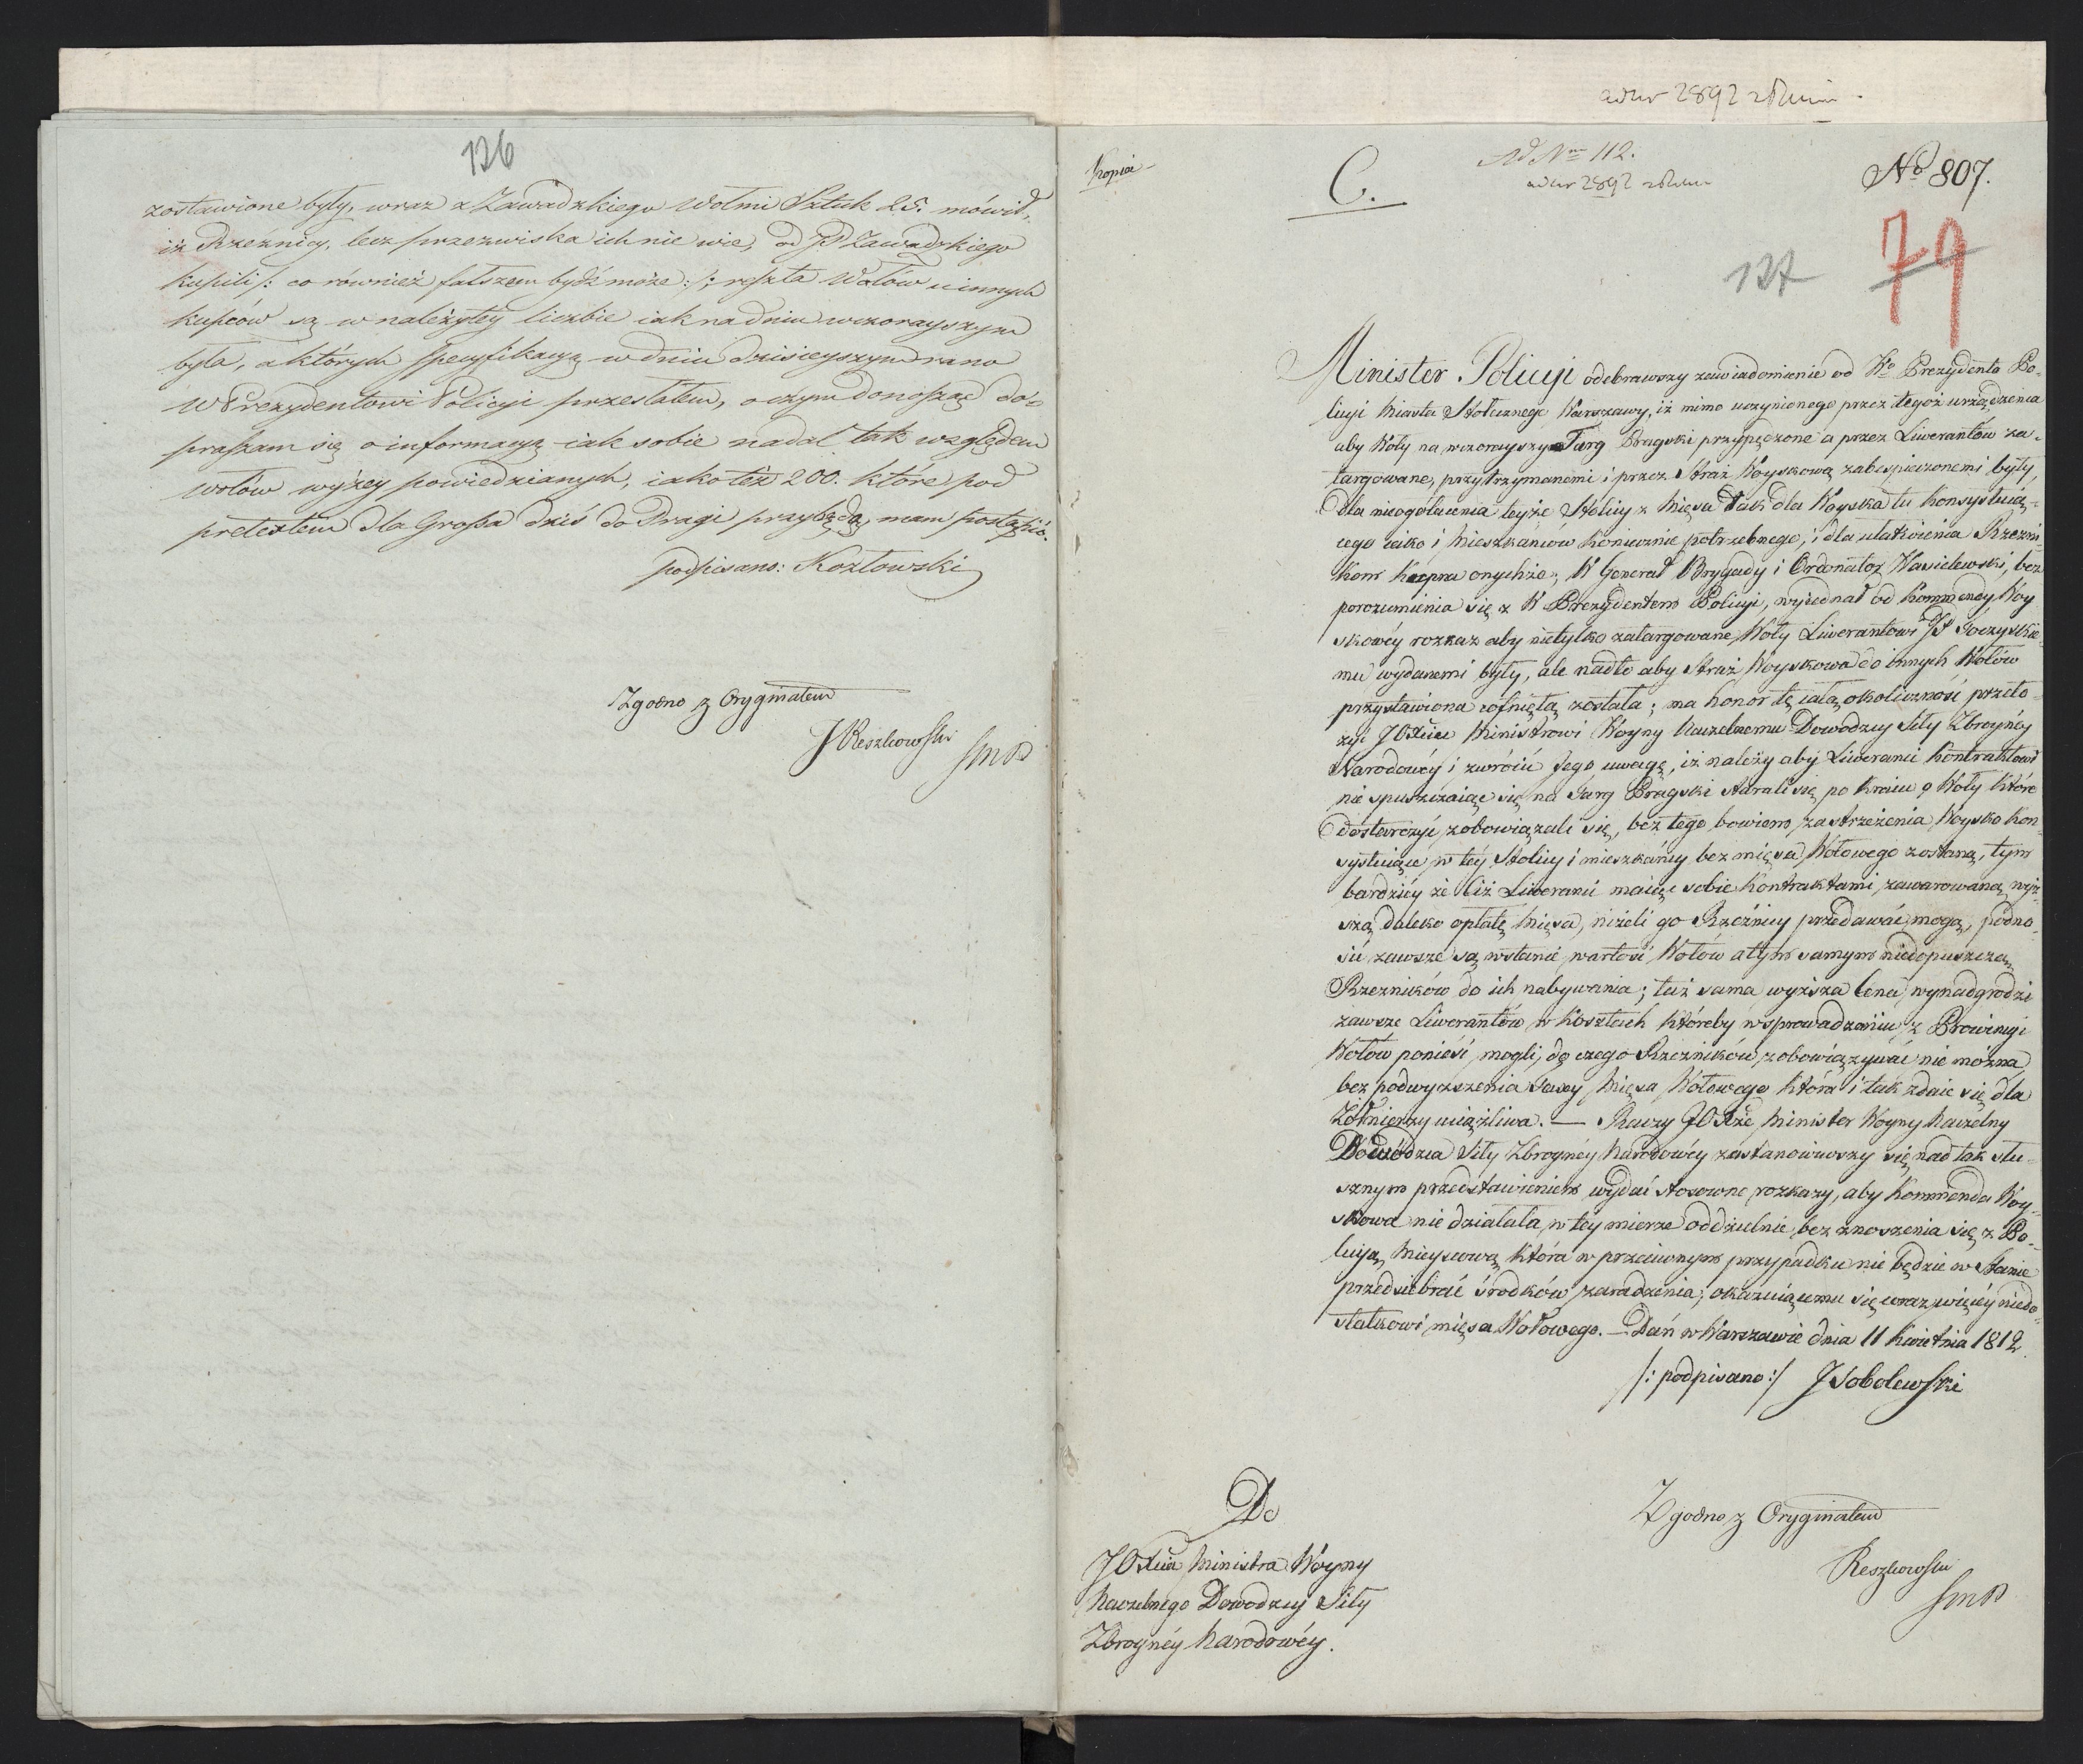 126
zostawione były, wraz z Zawadzkiego Wołmi Sztuk 25. mówił,
iż Rzeźnicy, lecz przezwiska ich nie wie, od JP Zawadzkiego
kupili /: co również fałszem bydź może :/; reszta Wołów u innych
kupców są w należytey liczbie iak na dniu wczorayszym
była, a których specyfikacyą w dniu dzisieyszym rano
W Prezydentowi Policyi przesłałem, o czym donosząc do-
praszam się o informacyą iak sobie nadal tak względem
wołów wyżey powiedzianych, iako też 200. które pod
pretextem dla Grossa dziś do Pragi przybędą, mam postąpić.
podpisano: Kozłowski
Zgodno z Oryginałem
J Reszkowski
SMP
ad Nr 2892
Kopia
C.
Ad Nrm 112.
ad Nr 2892
No 807.
127
79
Minister Policyi odebrawszy zawiadomienie od Wo Prezydenta Po-
licyi Miasta Stołecznego Warszawy, iż mimo uczynionego przez tegoż urządzenia
aby Woły na wczorayszy Targ Pragski przypędzone a przez Liwerantów za-
targowane, przytrzymanemi i przez Straż Woyskową zabespieczonemi były,
dla nieogołacenia teyże Stolicy z Mięsa tak dla Woyska tu konsystuią-
cego iako i Mieszkańców koniecznie potrzebnego, i dla ułatwienia Rzezni-
kom kupna onychże; W Generał Brygady i Ordonator Wasielewski, bez
porozumienia się z W Prezydentem Policyi, wyiednał od Kommendy Woy
skowéy rozkaz aby nietylko zatargowane Woły Liwerantowi JP Goczyskie-
mu wydanemi były, ale nadto aby Straż Woyskowa do innych Wołów
przystawiona cofniętą została; ma honor tę całą okoliczność przeło-
żyć JO Xciu Ministrowi Woyny Naczelnemu Dowodzcy Siły Zbroynéy
Narodowéy i zwrócić Jego uwagę, iż należy aby Liweranci kontraktowi
nie spuszczaiąc się na Targ Pragski starali się po kraiu o Woły które
dostarczyć zobowiązali się, bez tego bowiem zastrzeżenia Woysko kon-
systuiące w téy Stolicy i mieszkańcy bez mięsa Wołowego zostaną, tym
bardziéy że ciż Liweranci maiąc sobie kontraktami zawarowaną wyż-
szą daleko opłatę Mięsa, niżeli go Rzeźnicy przedawać mogą, podno-
sić zawsze są wstanie wartość Wołów a tym samym niedopuszczaią
Rzezników do ich nabywania; taż sama wyższa cena wynadgrodzi
zawsze Liwerantów w kosztach któreby w sprowadzaniu z Prowincyi
Wołów ponieść mogli, do czego Rzezników zobowiązywać nie można
bez podwyższenia taxy Mięsa Wołowego która i tak zdaie się dla
Żołnierzy uciążliwa. — Raczy JO Xże Minister Woyny Naczelny
Dowódzca Siły Zbroynéy Narodowéy zastanowiwszy się nad tak słu-
sznym przedstawieniem wydać stosowne rozkazy, aby Kommenda Woy-
skowa nie działała w téy mierze oddzielnie bez znoszenia się z Po-
licyą Mieyscową która w przeciwnym przypadku nie będzie w Stanie
przedsiebrać środków zaradzenia, okazuiącemu się coraz więcéy niedo-
statkowi mięsa Wołowego. — Dań w Warszawie dnia 11 Kwietnia 1812
/: podpisano :/ J Sobolewski
Do
JO Xcia Ministra Woyny
Naczelnego Dowodzcy Siły
Zbroynéy Narodowéy.
Zgodno z Oryginałem
Reszkowski
SMP